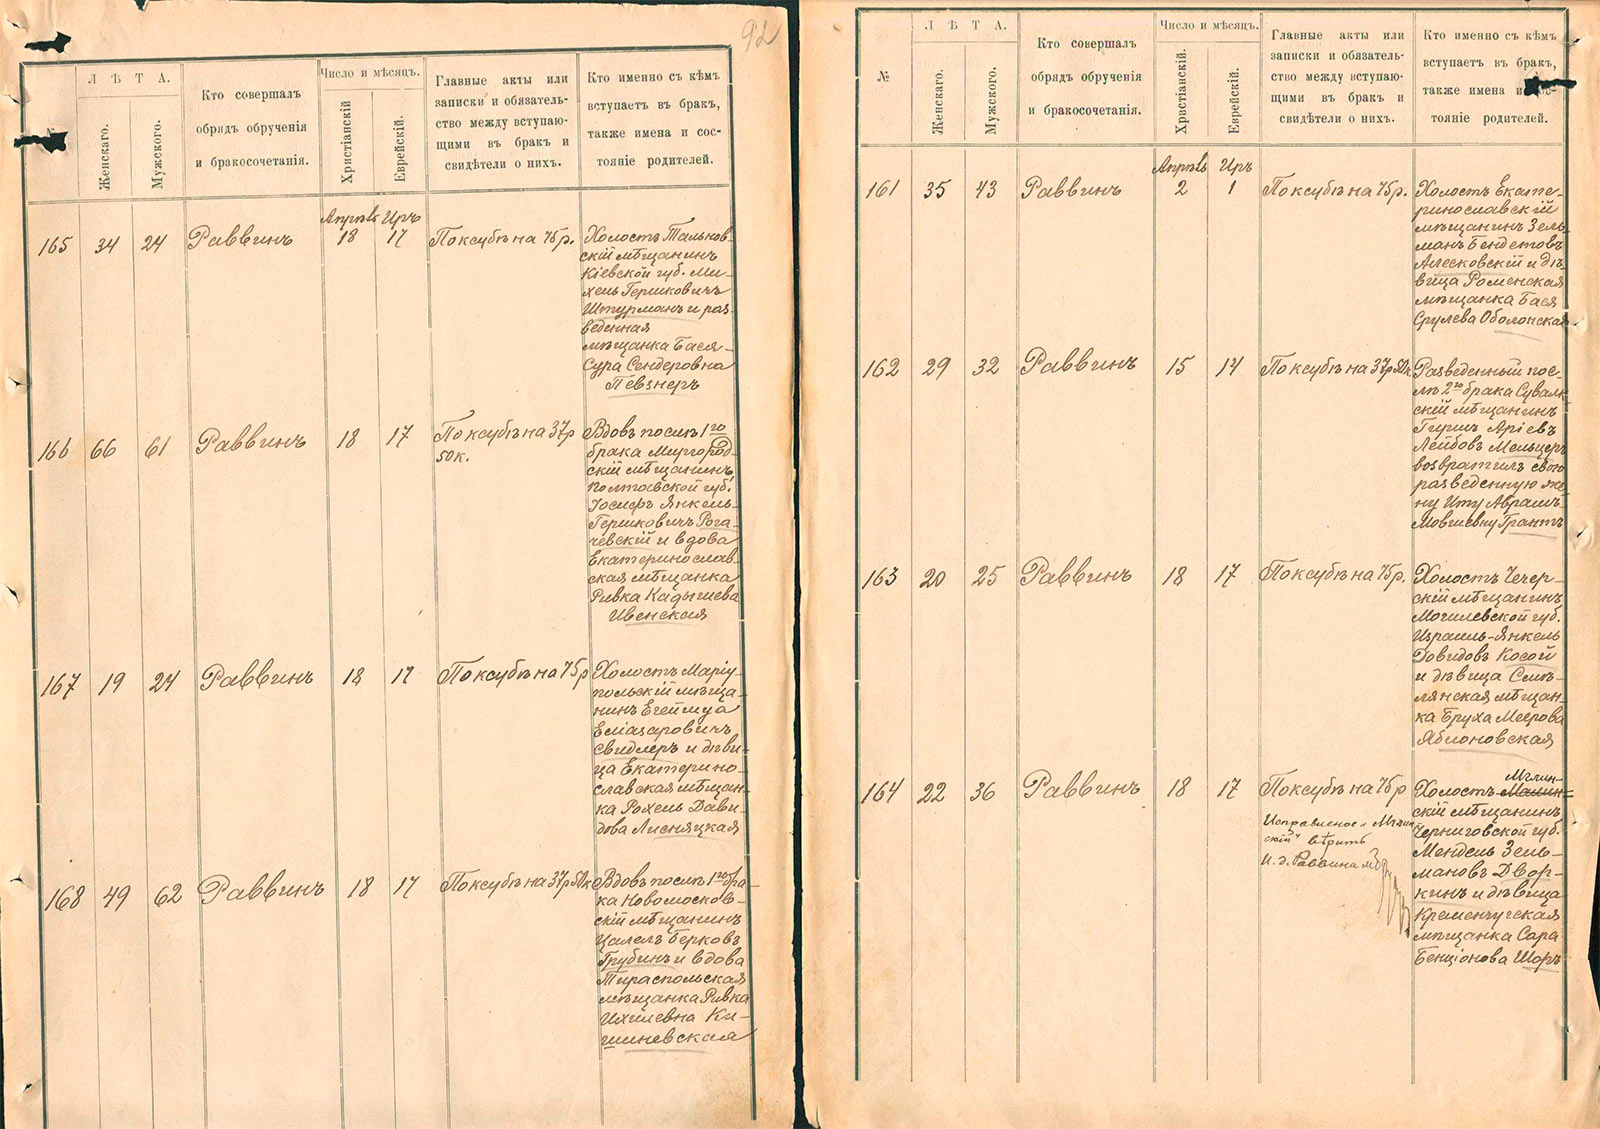 92
№
Л Ѣ Т А.
Женскаго.
Мужского.
Кто совершалъ
обрядъ обрученія
и бракосочетанія.
Число и мѣсяцъ.
Христіанскій
Еврейскій.
Главные акты или
записки и обязатель-
ство между вступаю-
щими въ бракъ и
свидѣтели о нихъ.
Кто именно съ кѣмъ
вступаетъ въ бракъ,
также имена и сос-
тояніе родителей.
Апрѣль Иръ
165 34 24 Раввинъ 18 17 По ксубѣ на 75 р.
Холостъ Тальнов-
скій мѣщанинъ
Кіевской губ. Ми-
хель Гершковичъ
Штурманъ и раз-
веденная
мѣщанка Бася-
Сура Сендеровна
Певзнеръ
166 66 61 Раввинъ 18 17 По ксубѣ на 37 р
50 к.
Вдовъ послѣ 1го
брака Миргород-
скій мѣщанинъ
Полтавской губ.
Іосифъ Янкель
Гершковичъ Рога-
чевскій и вдова
Екатеринослав-
ская мѣщанка
Ривка Кадышева
Ивенская
167 19 24 Раввинъ 18 17 По ксубѣ на 75 р
Холостъ Маріу-
польскій мѣща-
нинъ
Еліазаровичъ
Свидлеръ и дѣви-
ца Екатерино-
славская мѣщан-
ка Рохель Дави-
дова Лисняцкая
168 49 62 Раввинъ 18 17 По ксубѣ на 37 р 50 к
Вдовъ послѣ 1го бра-
ка Новомосков-
скій мѣщанинъ
Цалелъ Берковъ
Грубинъ и вдова
Тираспольская
мѣщанка Ривка
Ихилевна Ки-
шиневская
№
Л Ѣ Т А.
Женскаго.
Мужского.
Кто совершалъ
обрядъ обрученія
и бракосочетанія.
Число и мѣсяцъ.
Христіанскій.
Еврейскій.
Главные акты или
записки и обязатель-
ство между вступаю-
щими въ бракъ и
свидѣтели о нихъ.
Кто именно съ кѣмъ
вступаетъ въ бракъ,
также имена и сос-
тояніе родителей.
Апрѣль Иръ
161 35 43 Раввинъ 2 1 По ксубѣ на 75 р.
Холостъ Екате-
ринославскій
мѣщанинъ Зель-
манъ Бендетовъ
Алесковскій и дѣ-
вица Роменская
мѣщанка Бася
Срулева Оболонская
162 29 32 Раввинъ 15 14 По ксубѣ на 37 р 50 к
Разведенный пос-
лѣ 2го брака Сувалк-
скій мѣщанинъ
Гиршъ Аріевъ
Лейбовъ Мельцеръ
возвратилъ свою
разведенную же-
ну Иту Абрамъ
Мовшевну Грантъ
163 20 25 Раввинъ 18 17 По ксубѣ на 75 р.
Холостъ Чечер-
скій мѣщанинъ
Могилевской губ.
Израиль-Янкель
Довидовъ Косой
и дѣвица Смѣ-
лянская мѣщан-
ка Бруха Меерова
Яблоновская
164 22 36 Раввинъ 18 17 По ксубѣ на 75 р
Исправленное „Мглин-
скій“ вѣрить
И. д. Раввина
Мглин-
Холостъ
скій мѣщанинъ
Черниговской губ.
Мендель Зель-
мановъ Двор-
кинъ и дѣвица
Кременчугская
мѣщанка Сара
Бенціонова Шоръ